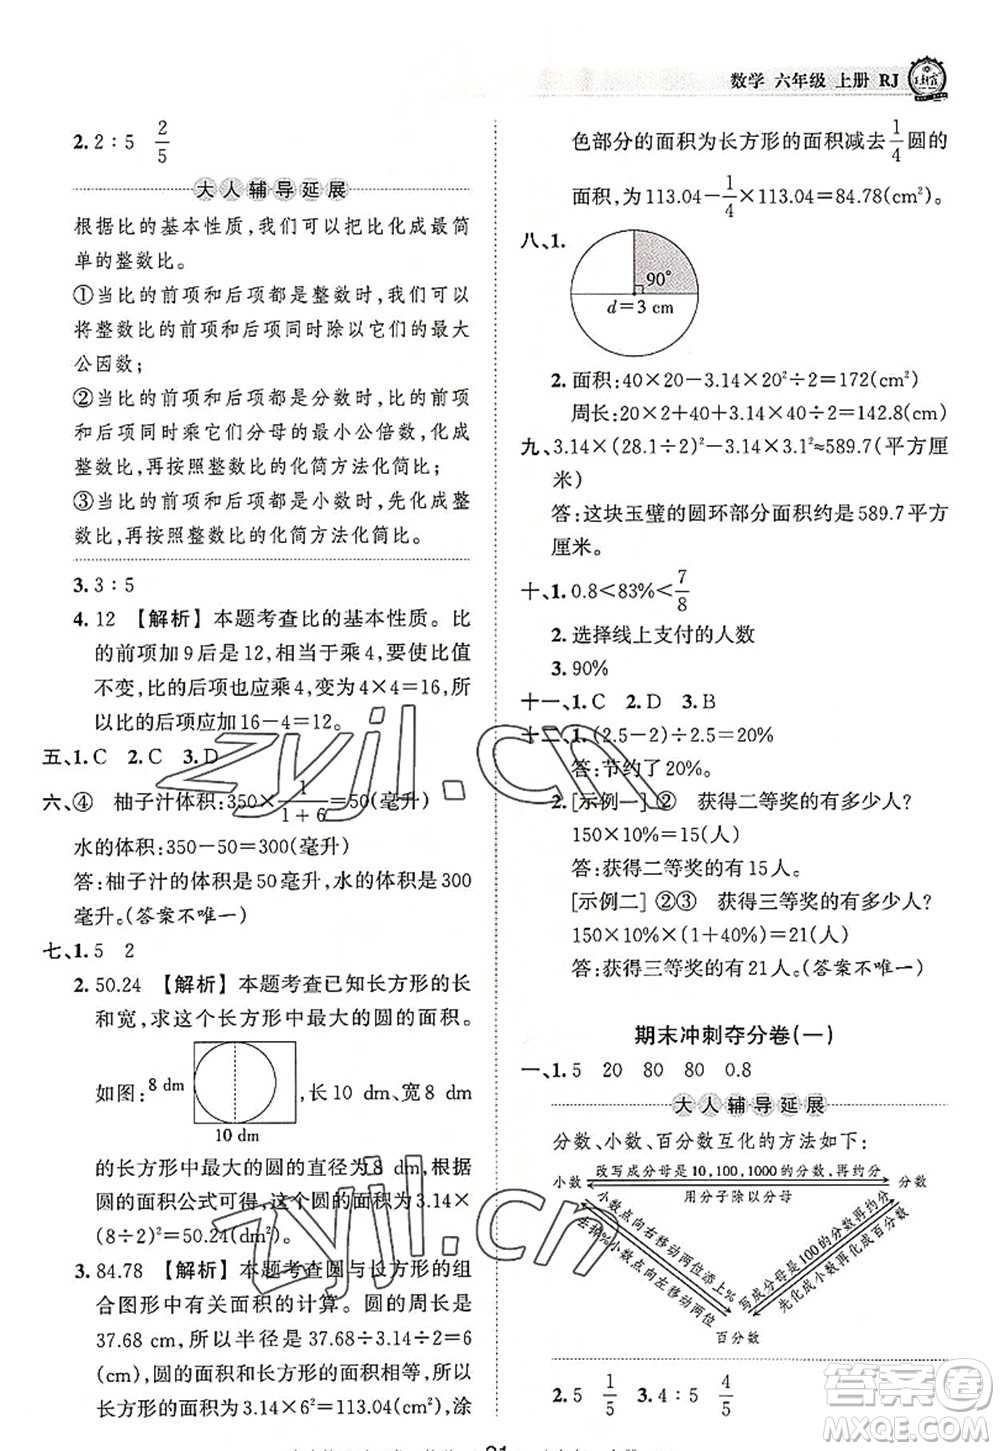 数学 六年级 上册 RJ
王朝霞
2. 2 : 5 2/5
大人辅导延展
根据比的基本性质,我们可以把比化成最简
单的整数比。
①当比的前项和后项都是整数时,我们可以
将整数比的前项和后项同时除以它们的最大
公因数;
②当比的前项和后项都是分数时,比的前项
和后项同时乘它们分母的最小公倍数,化成
整数比,再按照整数比的化简方法化简比;
③当比的前项和后项都是小数时,先化成整
数比,再按照整数比的化简方法化简比。
3. 3 : 5
4. 12 【解析】本题考查比的基本性质。比
的前项加9后是12,相当于乘4,要使比值
不变,比的后项也应乘4,是4×4=16,所
以比的后项应加16-4=12。
五、1. C 2. C 3. D
六、④ 柚子汁体积:350×1/(1+6)=50(毫升)
水的体积:350-50=300(毫升)
答:柚子汁的体积是50毫升,水的体积是300
毫升。(答案不唯一)
七、1. 5 2
2. 50.24 【解析】本题考查已知长方形的长
和宽,求这个长方形中最大的圆的面积。
如图:8 dm ,长10 dm、宽8 dm
10 dm
的长方形中最大的圆的直径为8 dm,根据
圆的面积公式可得,这个圆的面积为3.14×
(8÷2)²=50.24(dm²)。
3. 84.78 【解析】本题考查圆与长方形的组
合图形中有关面积的计算。圆的周长是
37.68 cm,所以半径是37.68÷3.14÷2=6
(cm),圆的面积与长方形的面积相等,所以
长方形的面积为3.14×6²=113.04(cm²),涂
色部分的面积为长方形的面积减去1/4圆的
面积,为113.04-1/4×113.04=84.78(cm²)。
八、1.
90°
d=3 cm
2. 面积:40×20-3.14×20²÷2=172(cm²)
周长:20×2+40+3.14×40÷2=142.8(cm)
九、3.14×(28.1÷2)²-3.14×3.1²≈589.7(平方厘
米)
答:这块玉璧的圆环部分面积约是589.7平方
厘米。
十、1. 0.8<83%<7/8
2. 选择线上支付的人数
3. 90%
十一、1. C 2. D 3. B
十二、1. (2.5-2)÷2.5=20%
答:节约了20%。
2. [示例一] ② 获得二等奖的有多少人?
150×10%=15(人)
答:获得二等奖的有15人。
[示例二] ②③ 获得三等奖的有多少人?
150×10%×(1+40%)=21(人)
答:获得三等奖的有21人。(答案不唯一)
期末冲刺夺分卷(一)
一、1. 5 20 80 80 0.8
大人辅导延展
分数、小数、百分数互化的方法如下:
小数 改写成分母是10,100,1000的分数,再约分 分数
用分子除以分母
小数点向右移动两位添上%
去掉%小数点向左移动两位
写成分母是100的分数再约分
先化成小数再化成百分数
百分数
2. 5 1/5 3. 4 : 5 4/5
zyjl.cn
zyjl.cn
答案圈
MXQE.COM